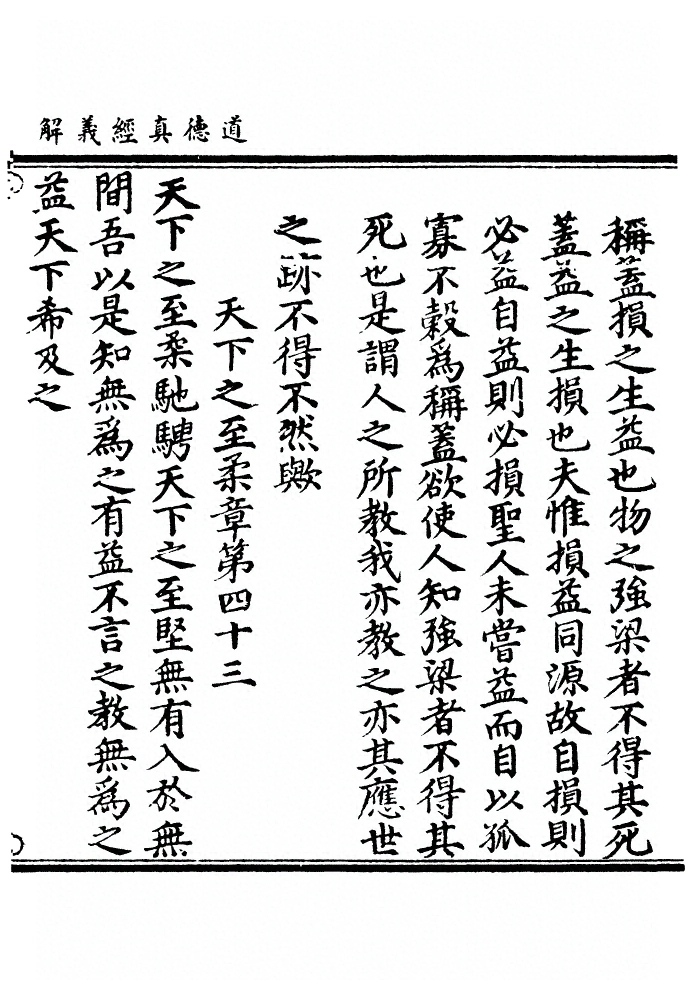 道德真經義解
稱蓋損之生益也物之強梁者不得其死
蓋益之生損也夫惟損益同源故自損則
必益自益則必損聖人未嘗益而自以孤
寡不穀爲稱蓋欲使人知強梁者不得其
死也是謂人之所教我亦教之亦其應世
之跡不得不然歟
天下之至柔章第四十三
天下之至柔馳騁天下之至堅無有入於無
間吾以是知無爲之有益不言之教無爲之
益天下希及之